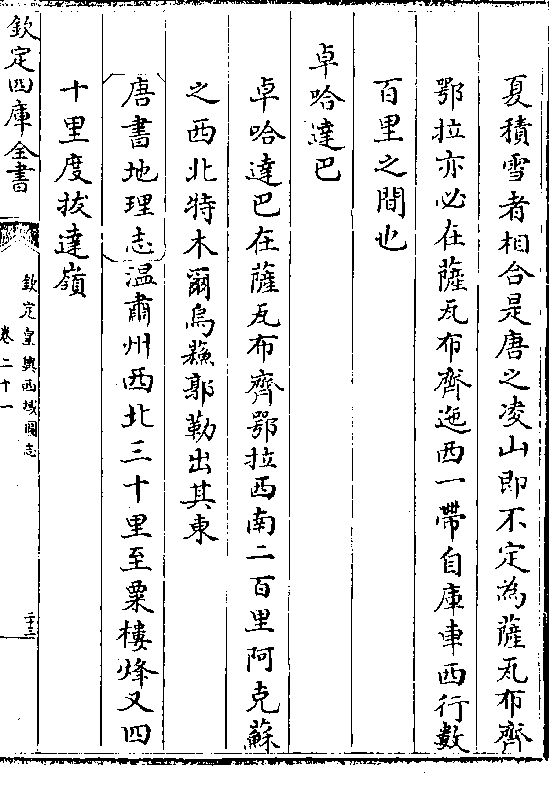 夏積雪者相合是唐之凌山即不定為薩瓦布齊
鄂拉亦必在薩瓦布齊迤西一帶自庫車西行數
百里之間也
卓哈達巴
卓哈達巴在薩瓦布齊鄂拉西南二百里阿克蘇
之西北特木爾烏蘓郭勒出其東
唐書地理志温肅州西北三十里至粟樓烽又四
十里度拔達嶺
欽定四庫全書
欽定皇輿西域圖志
卷二十一
二十三